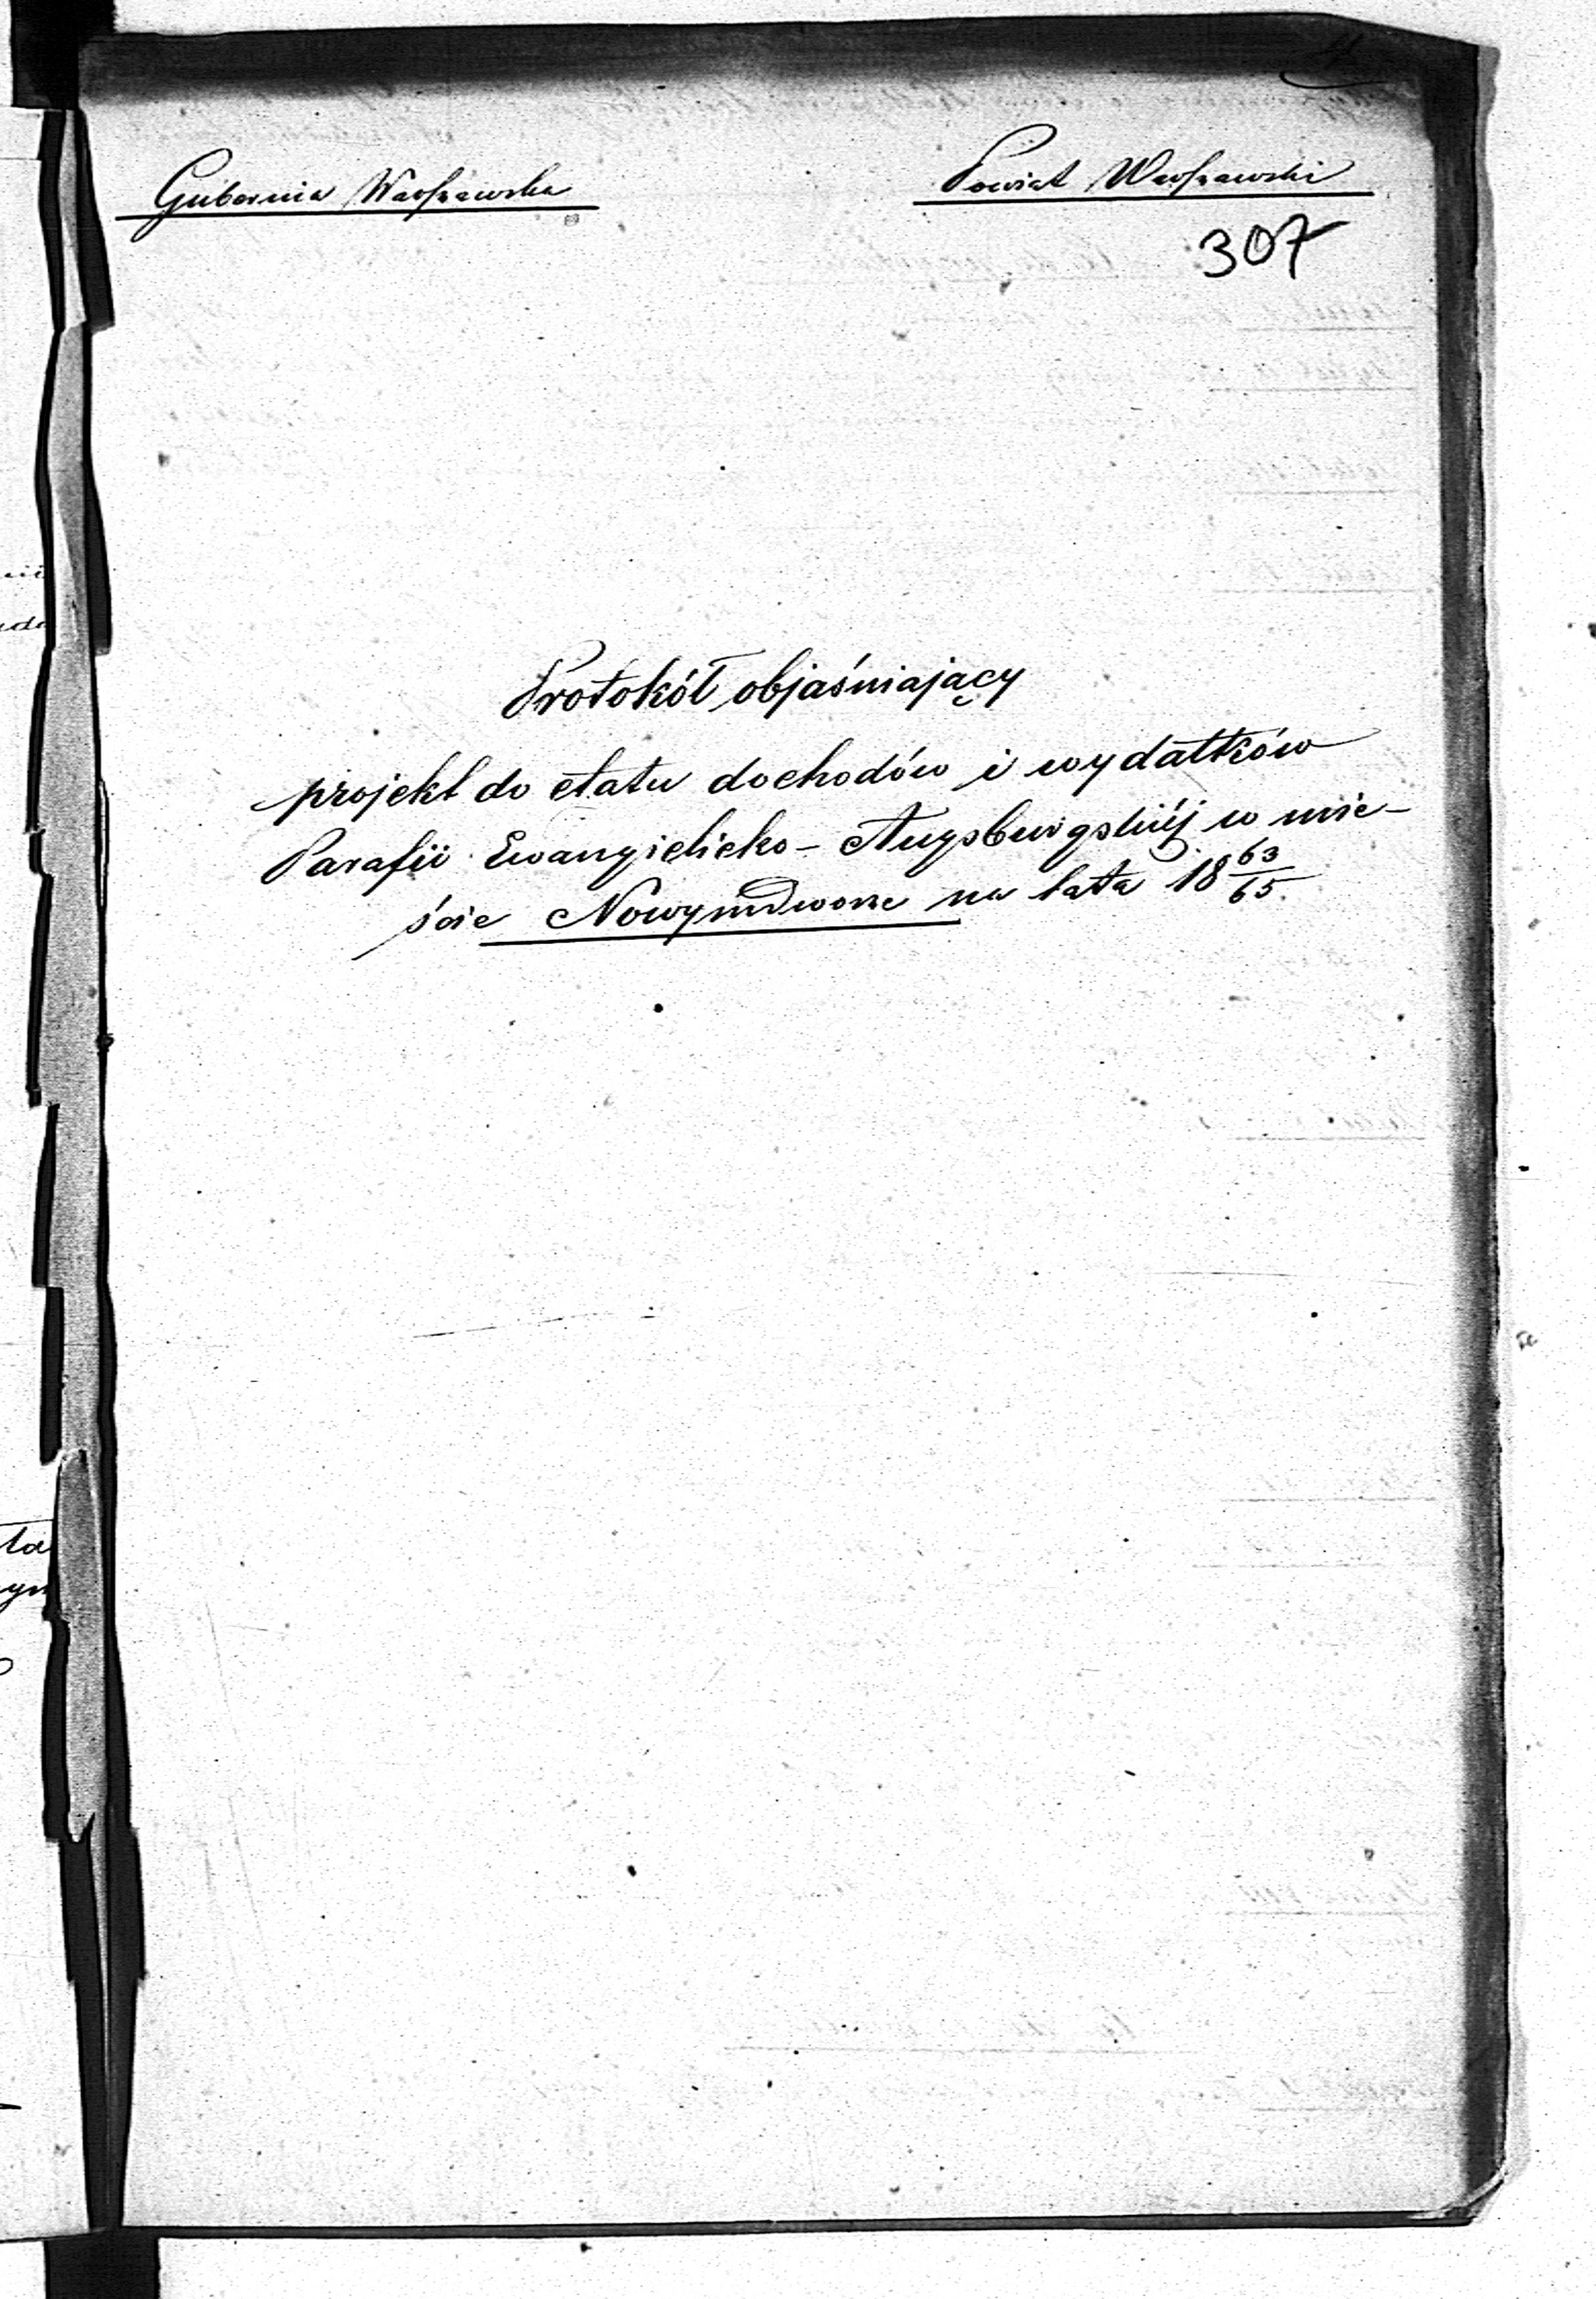 Gubernia Warszawska
Powiat Warszawski
307
Protokół objaśniający
projekt do etatu dochodów i wydatków
Parafii Ewangielicko-Augsburgskiéj w mie-
ście Nowymdworze na lata 18 63/65.